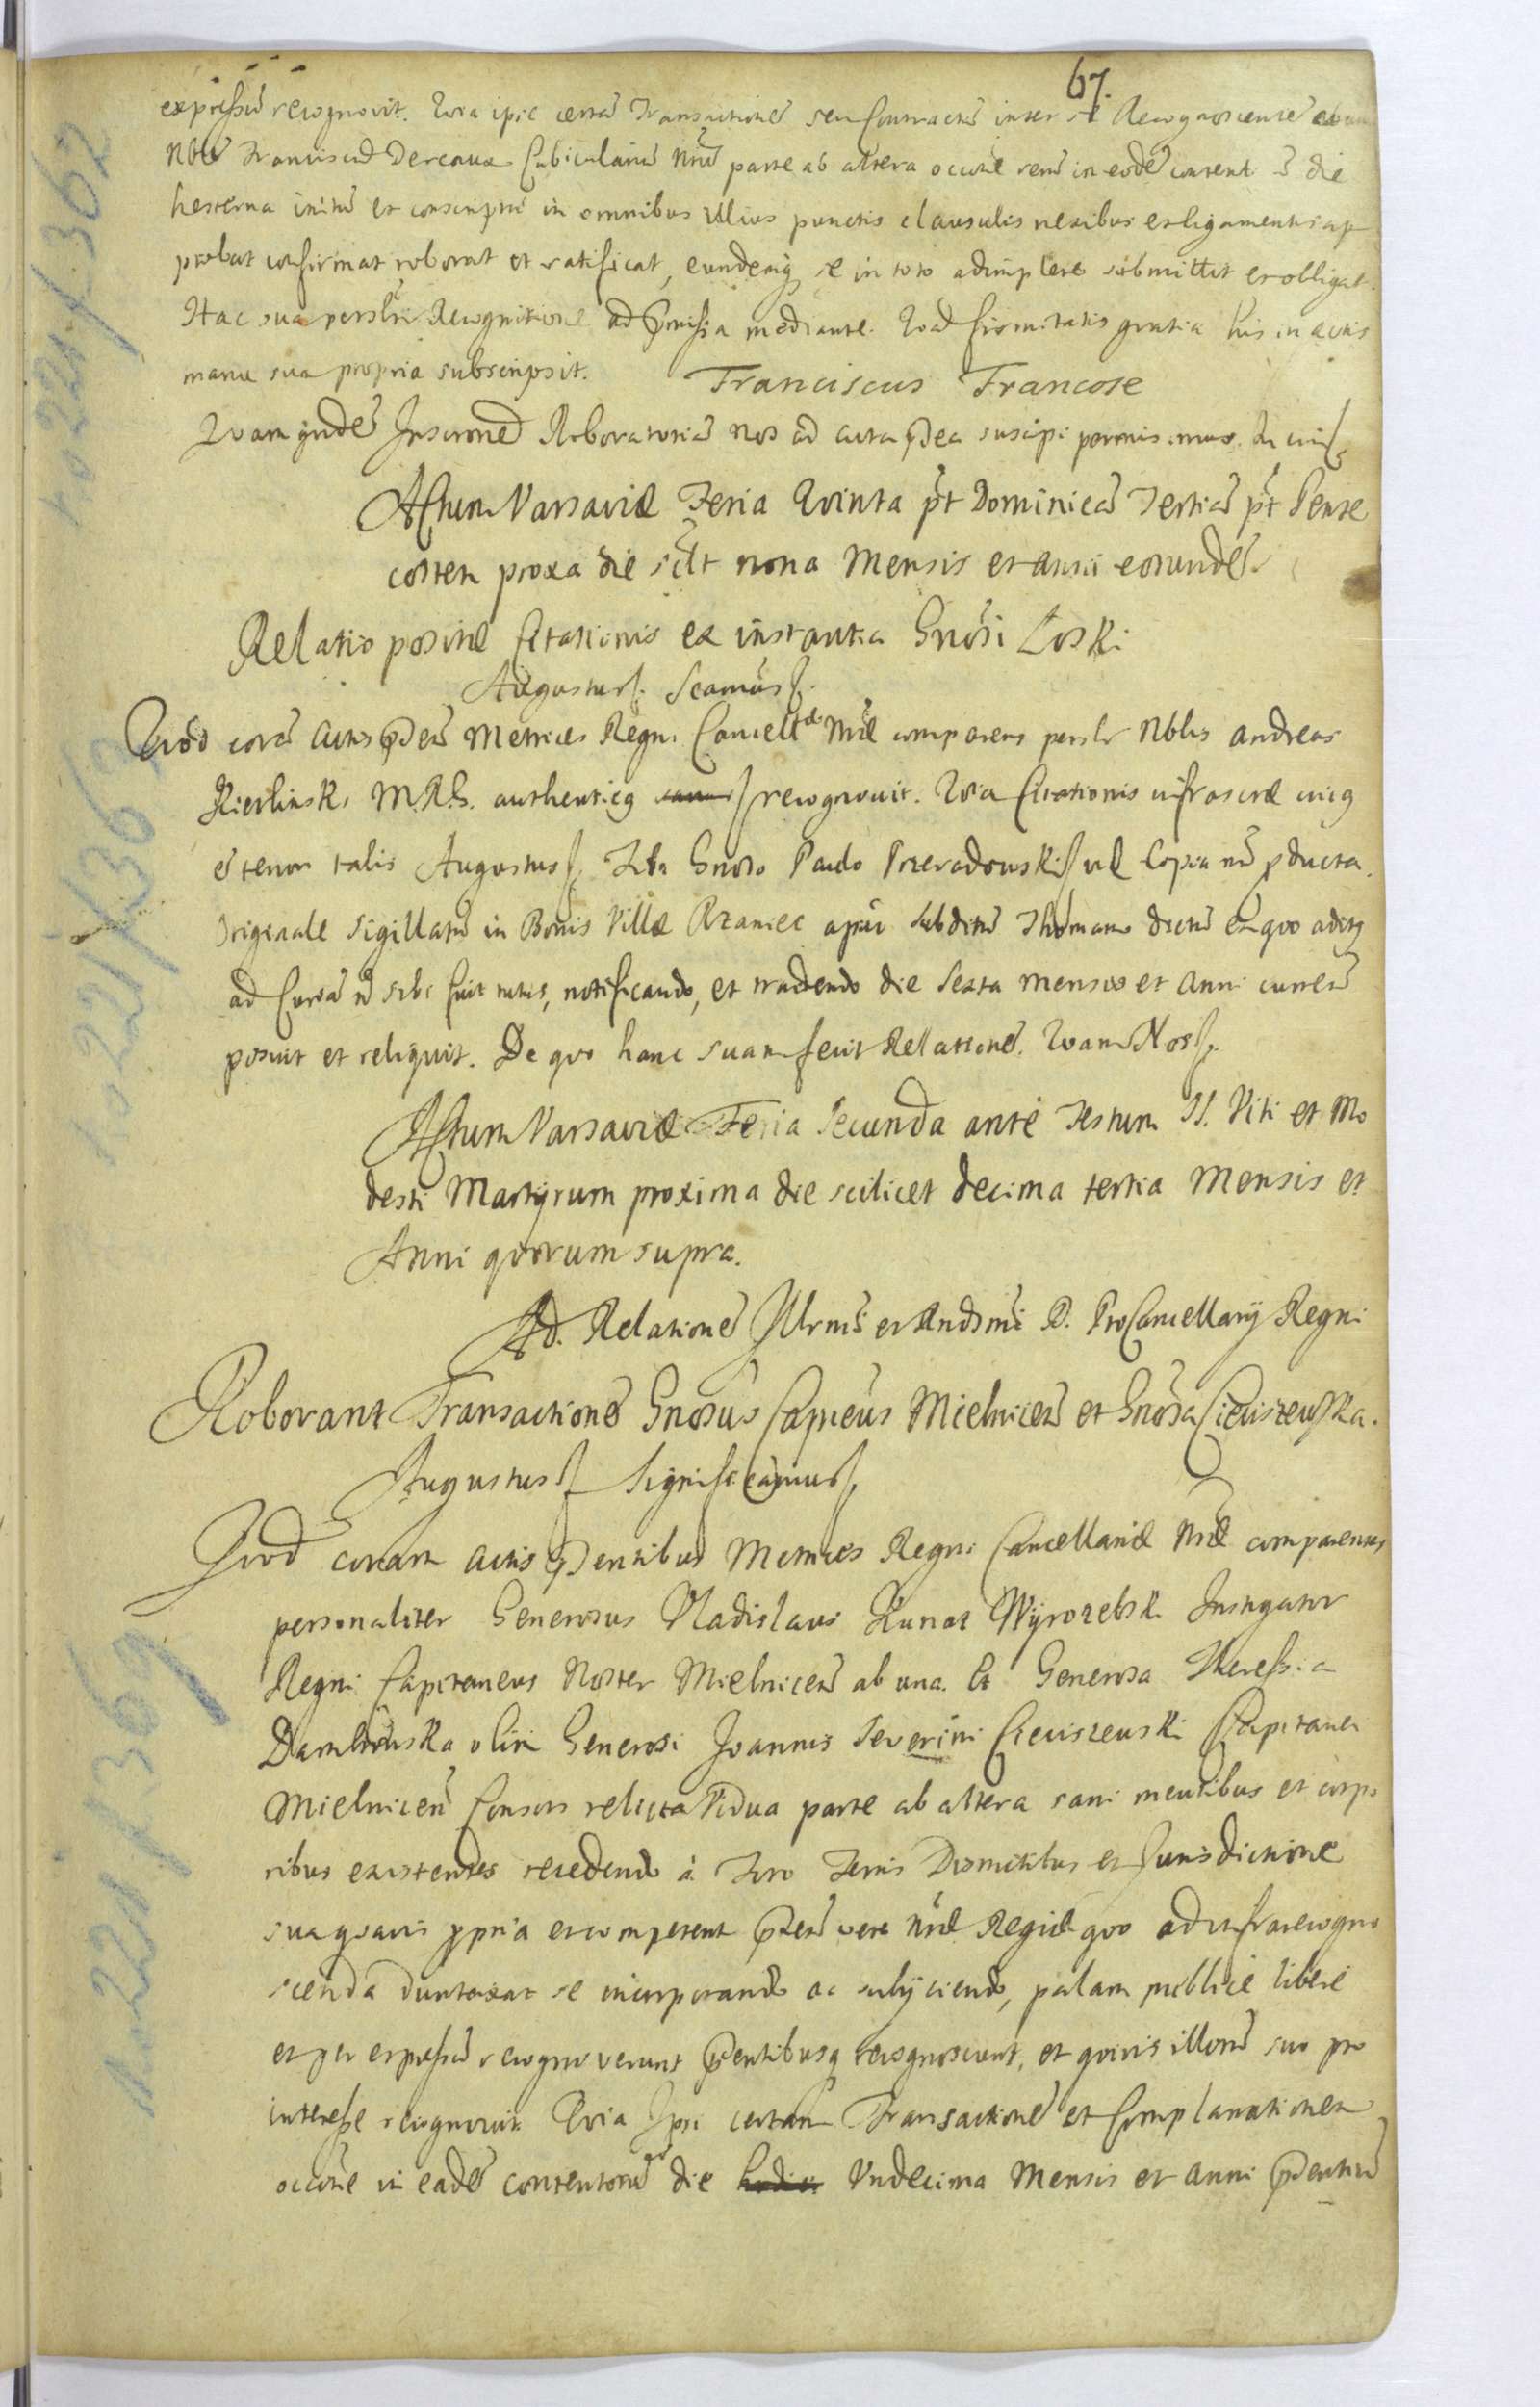 67.
expressū recognovit. Qvia ipse certā Transactionē seu Contractū inter se Recognoscentē ab una
Nblē Franciscū Dercaux Cubiculariū Nrūm parte ab altera occone rerū in eodē content. die
hesterna initū et conscriptū in omnibus illius punctis clausulis nexibus et ligamentis ap
probat confirmat roborat et ratificat, eundemq se in toto adimplere submittit et obligat.
Hac sua persli Recognitione ad pmissa mediante. Qvod firmitatis gratia his in actis
manu sua propria subscripsit. Franciscus Francose
Qvam qnde Inscrone Roboratoriā nos ad acta pdea suscipi permisimus. In cuiꝭ
Actum Varsaviæ Feria Qvinta pt Dominicā Tertiā pt Pente
costen proxa die scilt nona Mensis et anni eorundē
Relatio positæ Citationis ex instantia Gnosi Łoski
Augustus. Scamus.
Qvod corā actis pdem Metrices Regni Cancell. Nræ comparens persl Nblis Andreas
Kierlinski M.R.G. authenticq recognovit. Qvia Citationis infrascræ cuiq
ē tenor talis Augustus Tibi Gnoso Paulo Przeradowski vl Copia nē pducta.
Originale Sigillatū in Bonis Villæ Rzaniec apud subditū Thomam dictū ex qvo aditq
ad Curiā n sibi fuit tutus, notificando, et tradendo die Sexta mensis et Anni currēn
posuit et reliquit. De qvo hanc suam fecit Relationē. Qvam Nos.
Actum Varsaviæ Feria Secunda ante Festum SS. Viti et Mo
desti Martyrum proxima die scilicet decima tertia Mensis et
Anni qvorum supra.
Ad Relationē Illrmi et Rndsmi D. ProCancellarij Regni
Roborant Transactionē Gnosus Capneus Mielnicen et Gnosa Cieciszewska.
Augustus Significamus
Qvod coram actis pdentibus Metrices Regni Cancellariæ Nræ comparentes
personaliter Generosus Vladislaus Kunat Wyrozebski Instigator
Regni Capitaneus Noster Mielnicen ab una. Et Generosa Theressia
Dambrowska olim Generosi Joannis Severini Cieciszewski Capitanei
Mielnicen Consors relicta Vidua parte ab altera sani mentibus et corpo
ribus existentes recedendo à Foro Terris Districtibus et Jurisdictione
sua qsavis ppria et competent pdenti vero Nræ Regiæ qvo ad infrarecogno
scenda duntaxat se incorporando ac subijciendo, palam publice libere
et per expressū recognoverunt pdentibusq recognoscunt, et qvivis illorū suo pro
interesse recognovit. Qvia Ipsi certam Transactionē et Complanationem
occone in eadē contentorū die Vndecima Mensis et anni pdentiū
10221/362
10221/363
10221/369